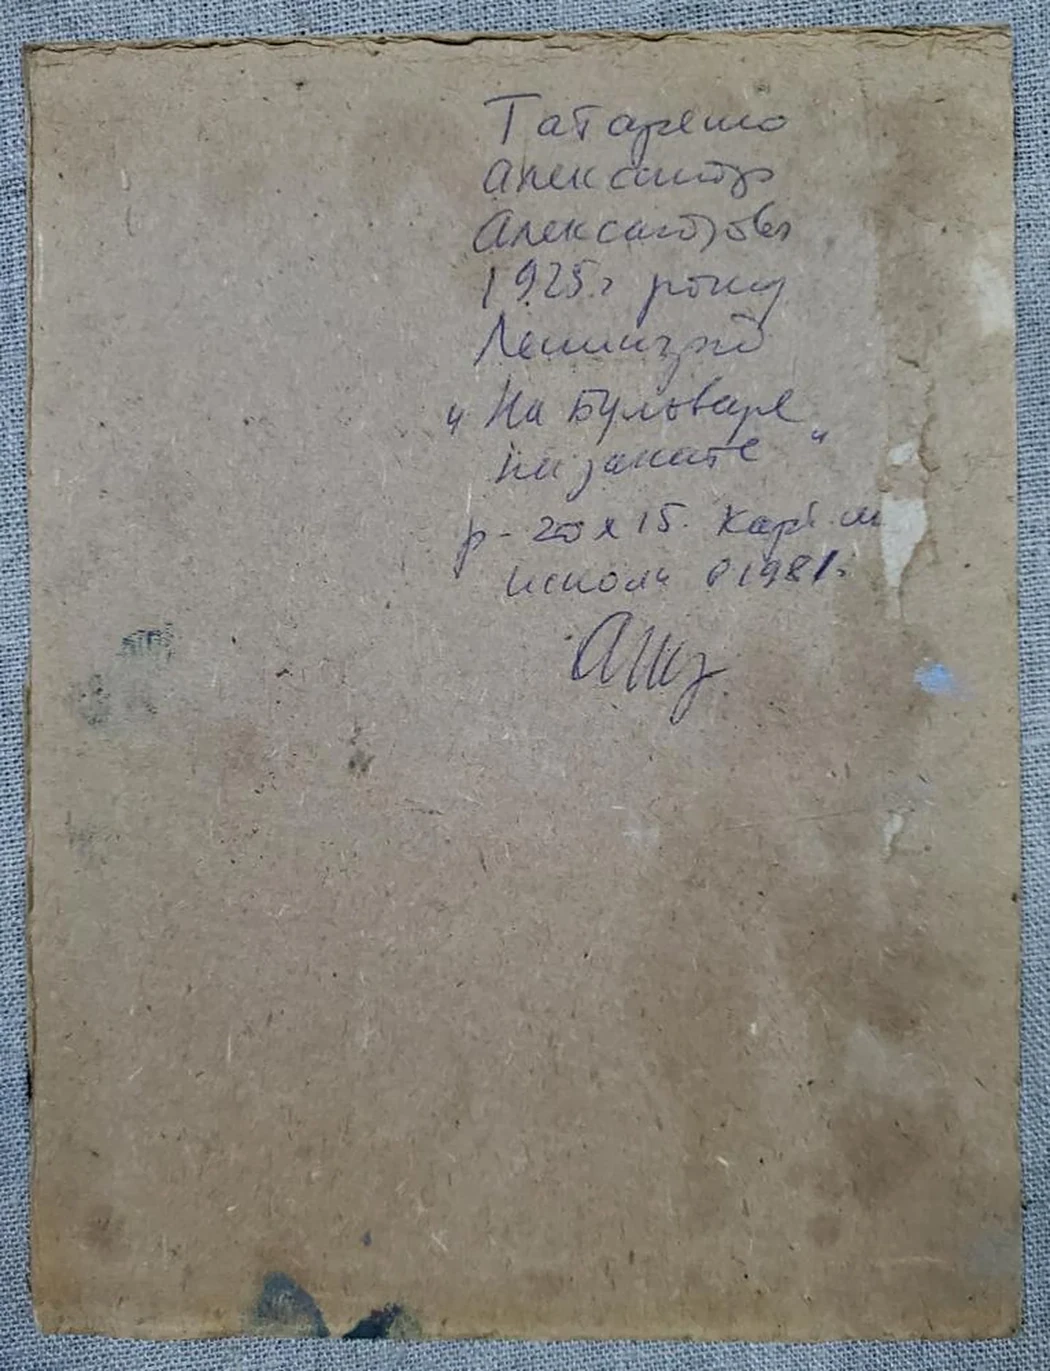 Татаренко
Александр
Александров
1925 г рожд
Ленинград
"На Бульваре
на закате"
р- 20 х 15. Карт. м
исполн в 1981г